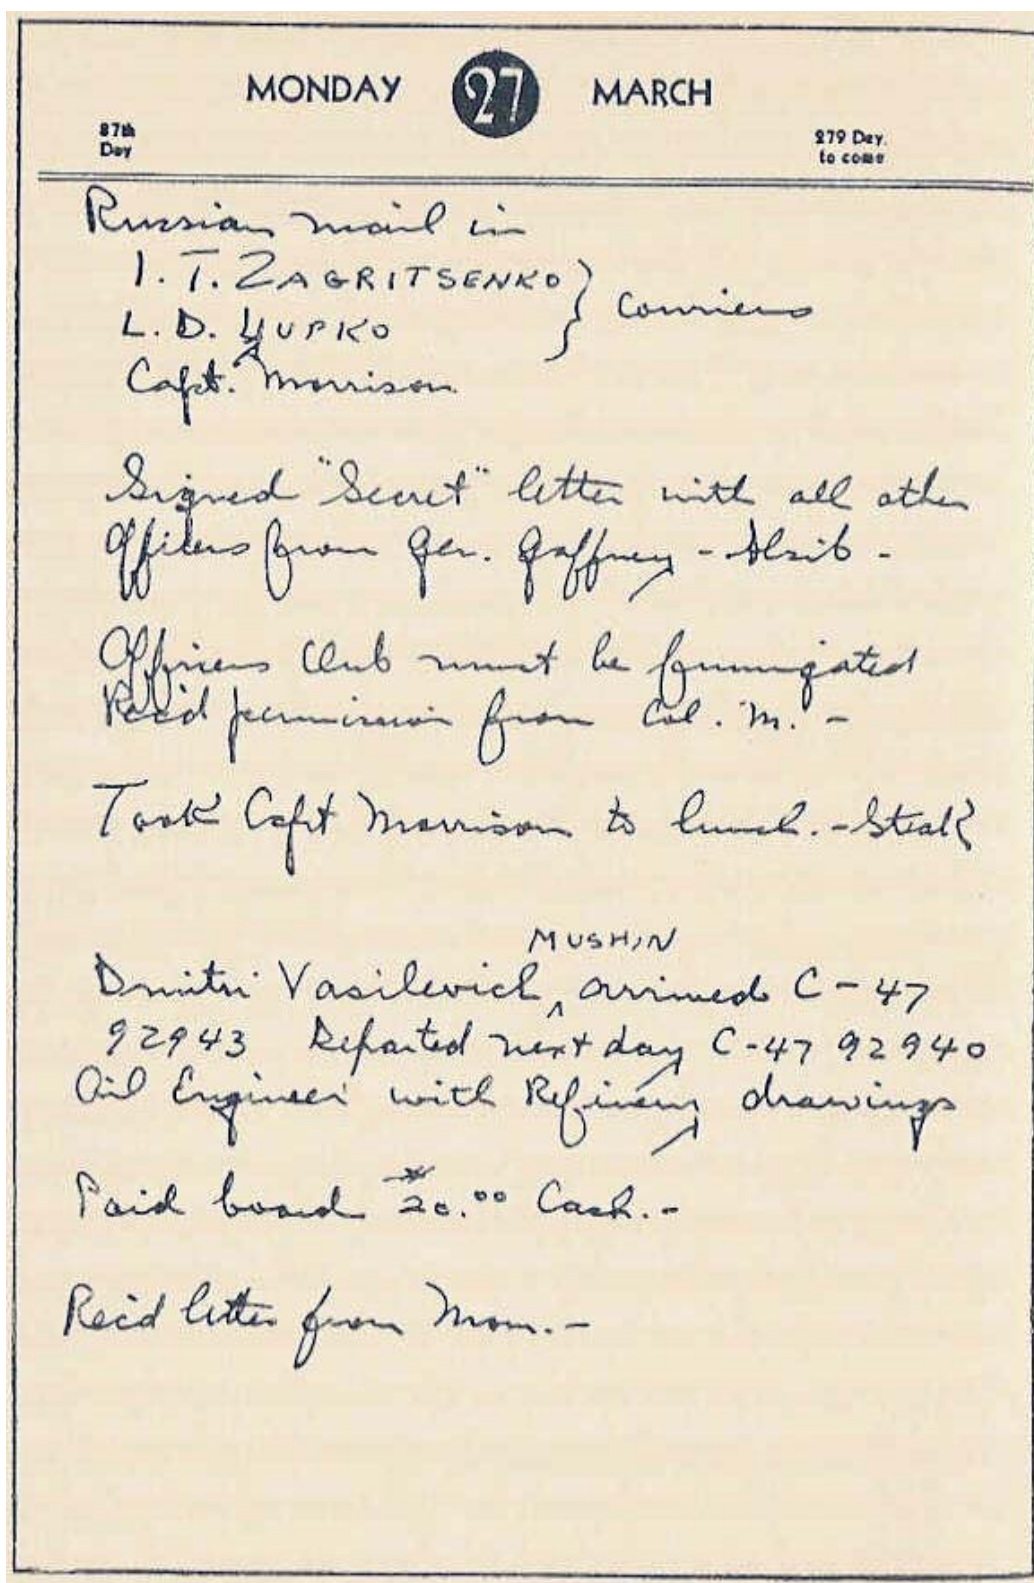 MONDAY 27 MARCH
87th Day
279 Day. to come
Russian mail in
I. T. ZAGRITSENKO
L. D. YUPKO } Couriers
Capt. Morrison
Signed "Secret" letter with all other
Officers from Gen. Gaffney - Alsib -
Officers Club must be fumigated
Rec'd permission from Col. M. -
Took Capt Morrison to lunch. - Steak
MUSHIN
Dmitri Vasilevich ^ arrived C-47
92943 Departed next day C-47 92940
Oil Engineer with Refinery drawings
Paid board $20.00 Cash. -
Rec'd letter from Mom. -